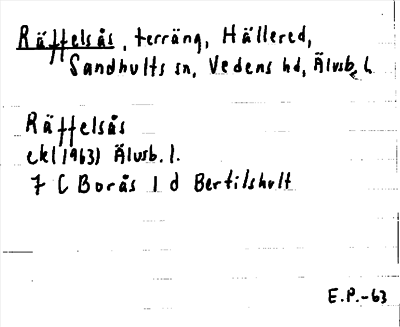 Räffelsås, terräng, Hällered,
Sandhults sn, Vedens hd, Älvsb. l.
Räffelsås
ekl (1963) Älvsb. l.
7 C Borås 1 d Bertilshult
E.P.-63